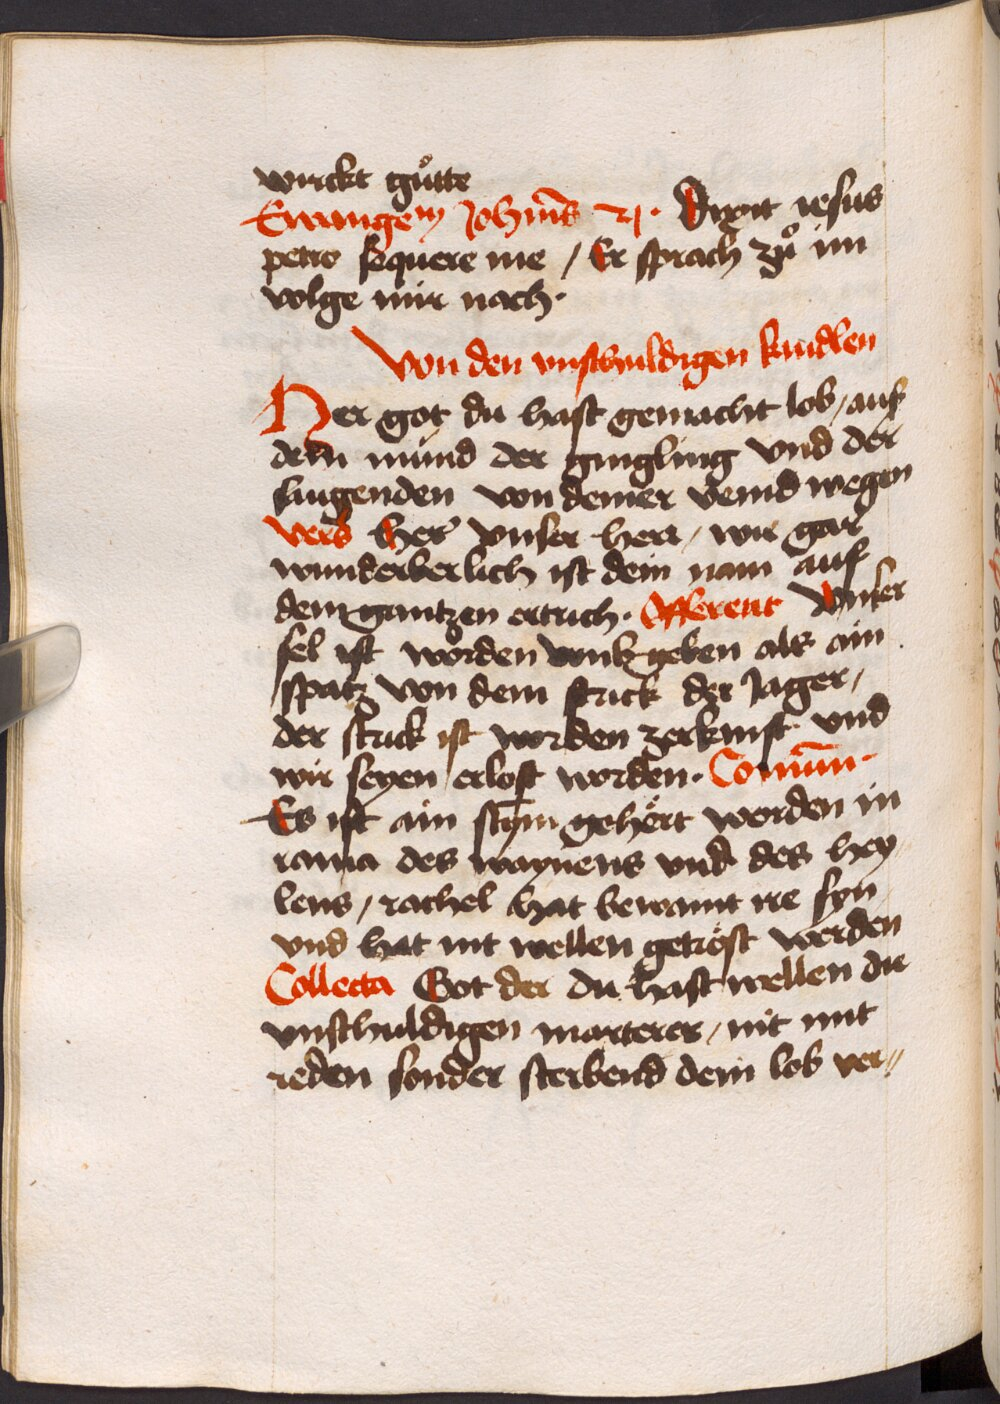 wirckt gůtte
Ewangeᵐ Joh̅nis 21. Dixit iesus
petro sequere me / Er sprach zů im
volge mir nach.
Von den vnschuldigen kindlen
Her got du hast gemacht lob / aus
dem mund der gingling vnd der
saugenden von deiner veind wegen
Vers Her vnser herr / wie gar
wunderberlich ist dein nam auf
dem gantzen ertrich. Offerent Vnser
sel ist worden geben als ain
spatz von dem strick der Jager /
der strick ist worden zerknist vnd
wir seyen erlost worden. Com̅un.
Es ist ain stym gehört worden in
rama des waynens vnd des hey
lens / rachel hat bewaint ire syn
vnd hat nit wellen getröst werden
Collecta Got der du hast wellen die
vnschuldigen marterer / nit mit
reden sonder sterbend dein lob ver //